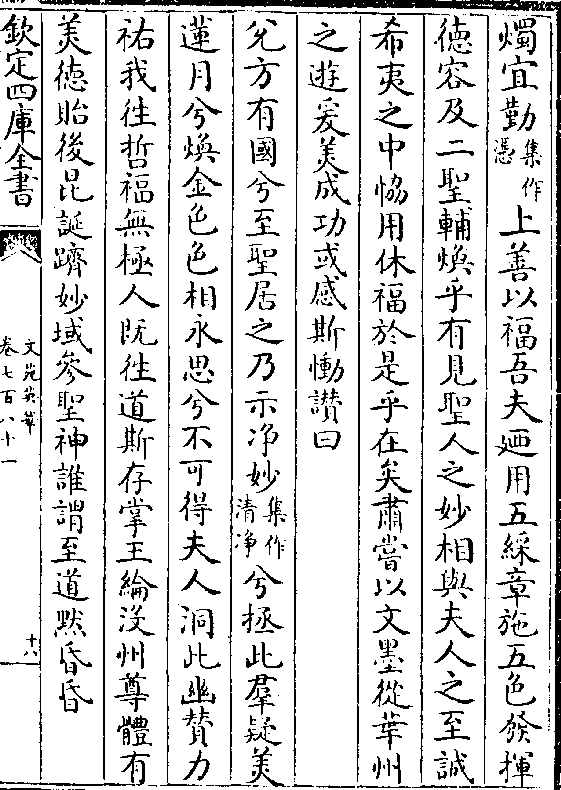 燭宜勤集作憑上善以福吾夫廼用五綵章施五色發揮
德容及二聖輔煥乎有見聖人之妙相與夫人之至誠
希夷之中恊用休福於是乎在矣肅嘗以文墨從華州
之遊爰美成功或感斯慟讃曰
兊方有國兮至聖居之乃示净妙集作清净兮拯此羣疑美
蓮月兮煥金色色相永思兮不可得夫人洞此幽賛力
祐我徃哲福無極人既徃道斯存掌王綸没州尊體有
美德貽後昆誕躋妙域參聖神誰謂至道黙昏昏
欽定四庫全書
文苑英華
卷七百八十一
十八